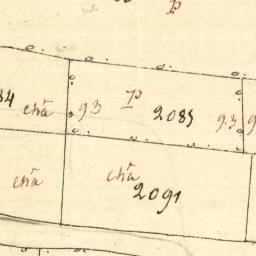 p
84 chā 93 p 2085 93 9
chā chā
2091